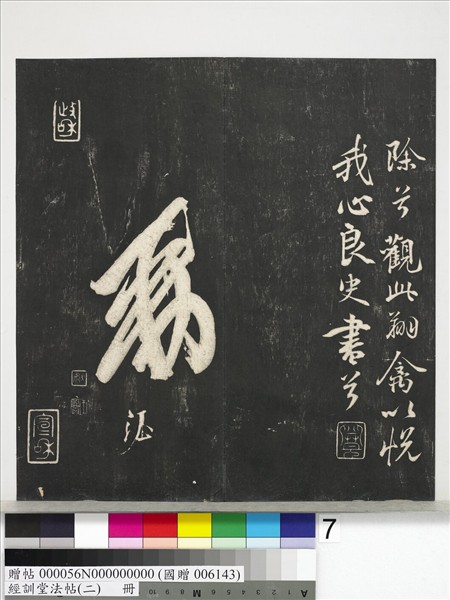 除兮觀此翔禽以悅
我心良史書兮
勅
政和
宣和
7
贈帖 000056N000000000 (國贈 006143)
經訓堂法帖(二) 冊